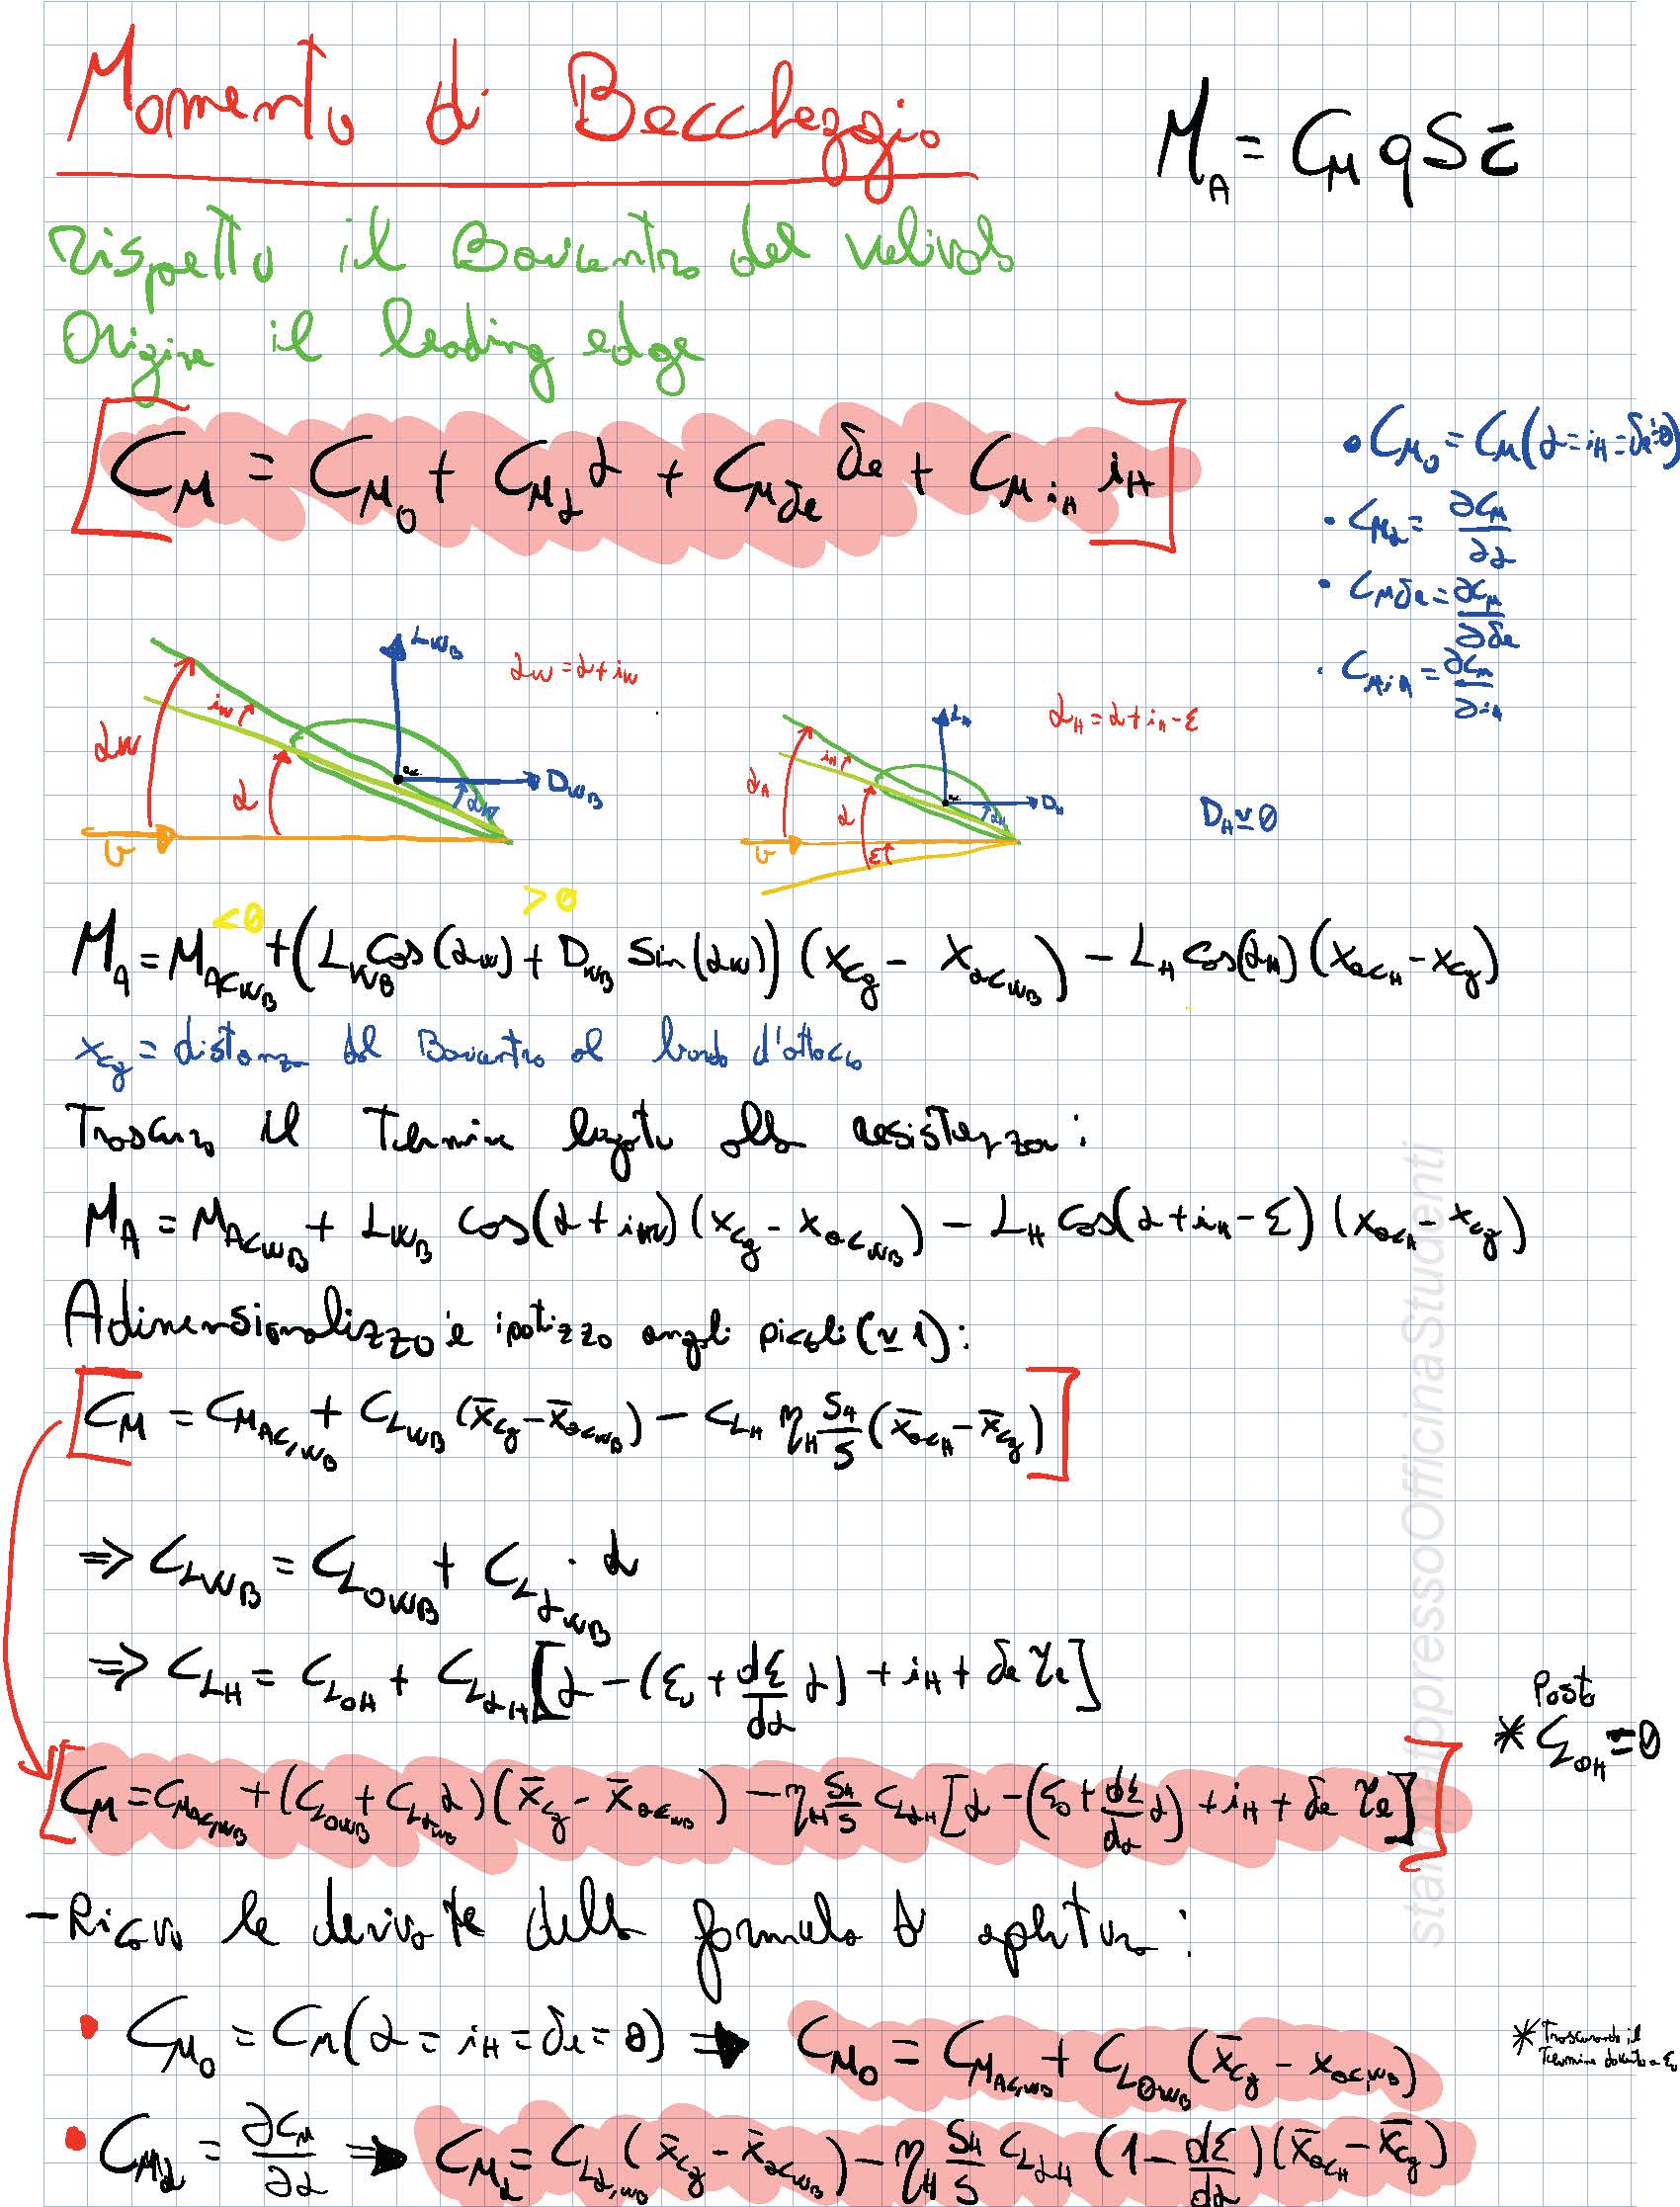 Momento di Beccheggio
M_A = C_M q S c̄
Rispetto il Baricentro del velivolo
Origine il leading edge
C_M = C_M0 + C_Mα α + C_Mδe δe + C_MiH iH
• C_M0 = C_M(α = iH = δe = 0)
• C_Mα = ∂C_M/∂α
• C_Mδe = ∂C_M/∂δe
• C_MiH = ∂C_M/∂iH
L_WB
α_W = α + i_W
i_W
α_W
α
a.c.
D_WB
α_W
v
L_H
α_H = α + i_H - ε
i_H
α_H
α
a.c.
D_H
α_H
v
ε
D_H ≃ 0
<0
>0
M_A = M_ACWB + (L_WB cos(α_W) + D_WB sin(α_W)) (x_cg - x_acWB) - L_H cos(α_H) (x_acH - x_cg)
x_cg = distanza dal Baricentro al bordo d'attacco
Trascuro il Termine legato alla resistenza:
M_A = M_ACWB + L_WB cos(α + i_W) (x_cg - x_acWB) - L_H cos(α + i_H - ε) (x_acH - x_cg)
Adimensionalizzo e ipotizzo angoli piccoli (≃ 1):
C_M = C_MAC,WB + C_LWB (x̄_cg - x̄_acWB) - C_LH η_H S_H/S (x̄_acH - x̄_cg)
⇒ C_LWB = C_L0WB + C_LαWB · α
⇒ C_LH = C_L0H + C_LαH [α - (ε_0 + dε/dα α) + i_H + δe τe]
Posto
* C_L0H = 0
C_M = C_MAC,WB + (C_L0WB + C_LαWB α) (x̄_cg - x̄_acWB) - η_H S_H/S C_LαH [α - (ε_0 + dε/dα α) + i_H + δe τe]
- Ricavo le derivate della formula di apertura:
• C_M0 = C_M(α = i_H = δe = 0) ⇒ C_M0 = C_MAC,WB + C_L0WB (x̄_cg - x_ac,WB)
* Trascurando il
Termine dovuto a ε_0
• C_Mα = ∂C_M/∂α ⇒ C_Mα = C_Lα,WB (x̄_cg - x̄_acWB) - η_H S_H/S C_LαH (1 - dε/dα) (x̄_acH - x̄_cg)